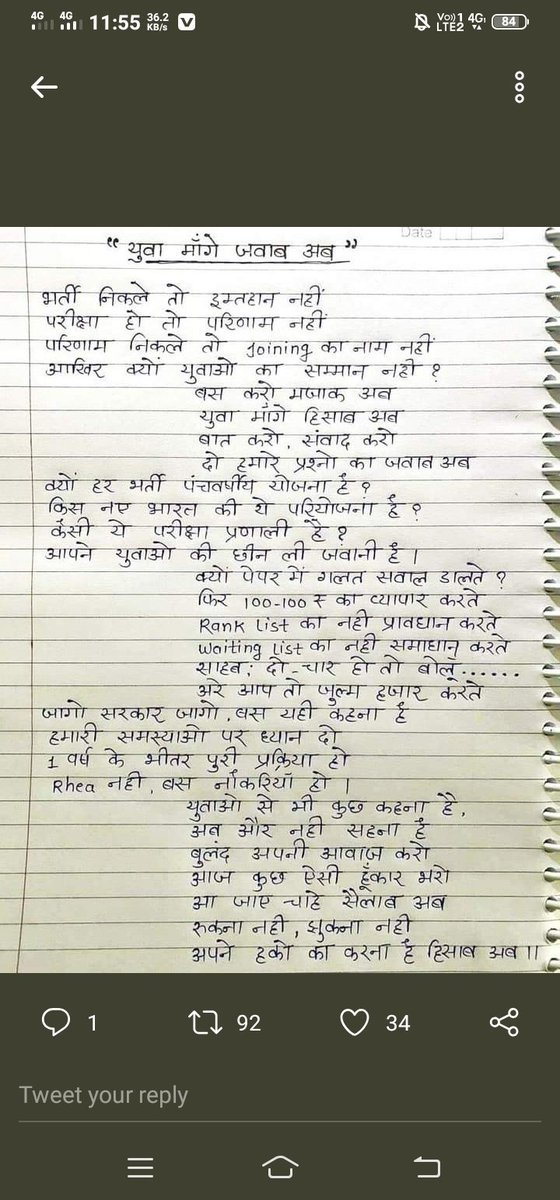 4G 4G 11:55 36.2 KB/s Vo)) 1 4G LTE2 84
Date
"युवा माँगे जवाब अब"
भर्ती निकले तो इम्तहान नहीं
परीक्षा हो तो परिणाम नहीं
परिणाम निकले तो Joining का नाम नहीं
आखिर क्यों युवाओ का सम्मान नही ?
बस करो मजाक अब
युवा माँगे हिसाब अब
बात करो, संवाद करो
दो हमारे प्रश्नो का जवाब अब
क्यों हर भर्ती पंचवर्षीय योजना है ?
किस नए भारत की ये परियोजना है ?
कैसी ये परीक्षा प्रणाली है ?
आपने युवाओ की छीन ली जवानी है ।
क्यों पेपर में गलत सवाल डालते ?
फिर 100-100 ₹ का व्यापार करते
Rank list का नही प्रावधान करते
waiting list का नही समाधान करते
साहब; दो-चार हो तो बोलू......
अरे आप तो जुल्म हजार करते
जागो सरकार जागो, बस यही कहना है
हमारी समस्याओ पर ध्यान दो
1 वर्ष के भीतर पुरी प्रक्रिया हो
Rhea नही, बस नौकरियाँ हो ।
युवाओ से भी कुछ कहना है,
अब और नही सहना है
बुलंद अपनी आवाज़ करो
आज कुछ ऐसी हूँकार भरो
आ जाए चाहे सैलाब अब
रुकना नही, झुकना नही
अपने हको का करना है हिसाब अब ।।
1 92 34
Tweet your reply